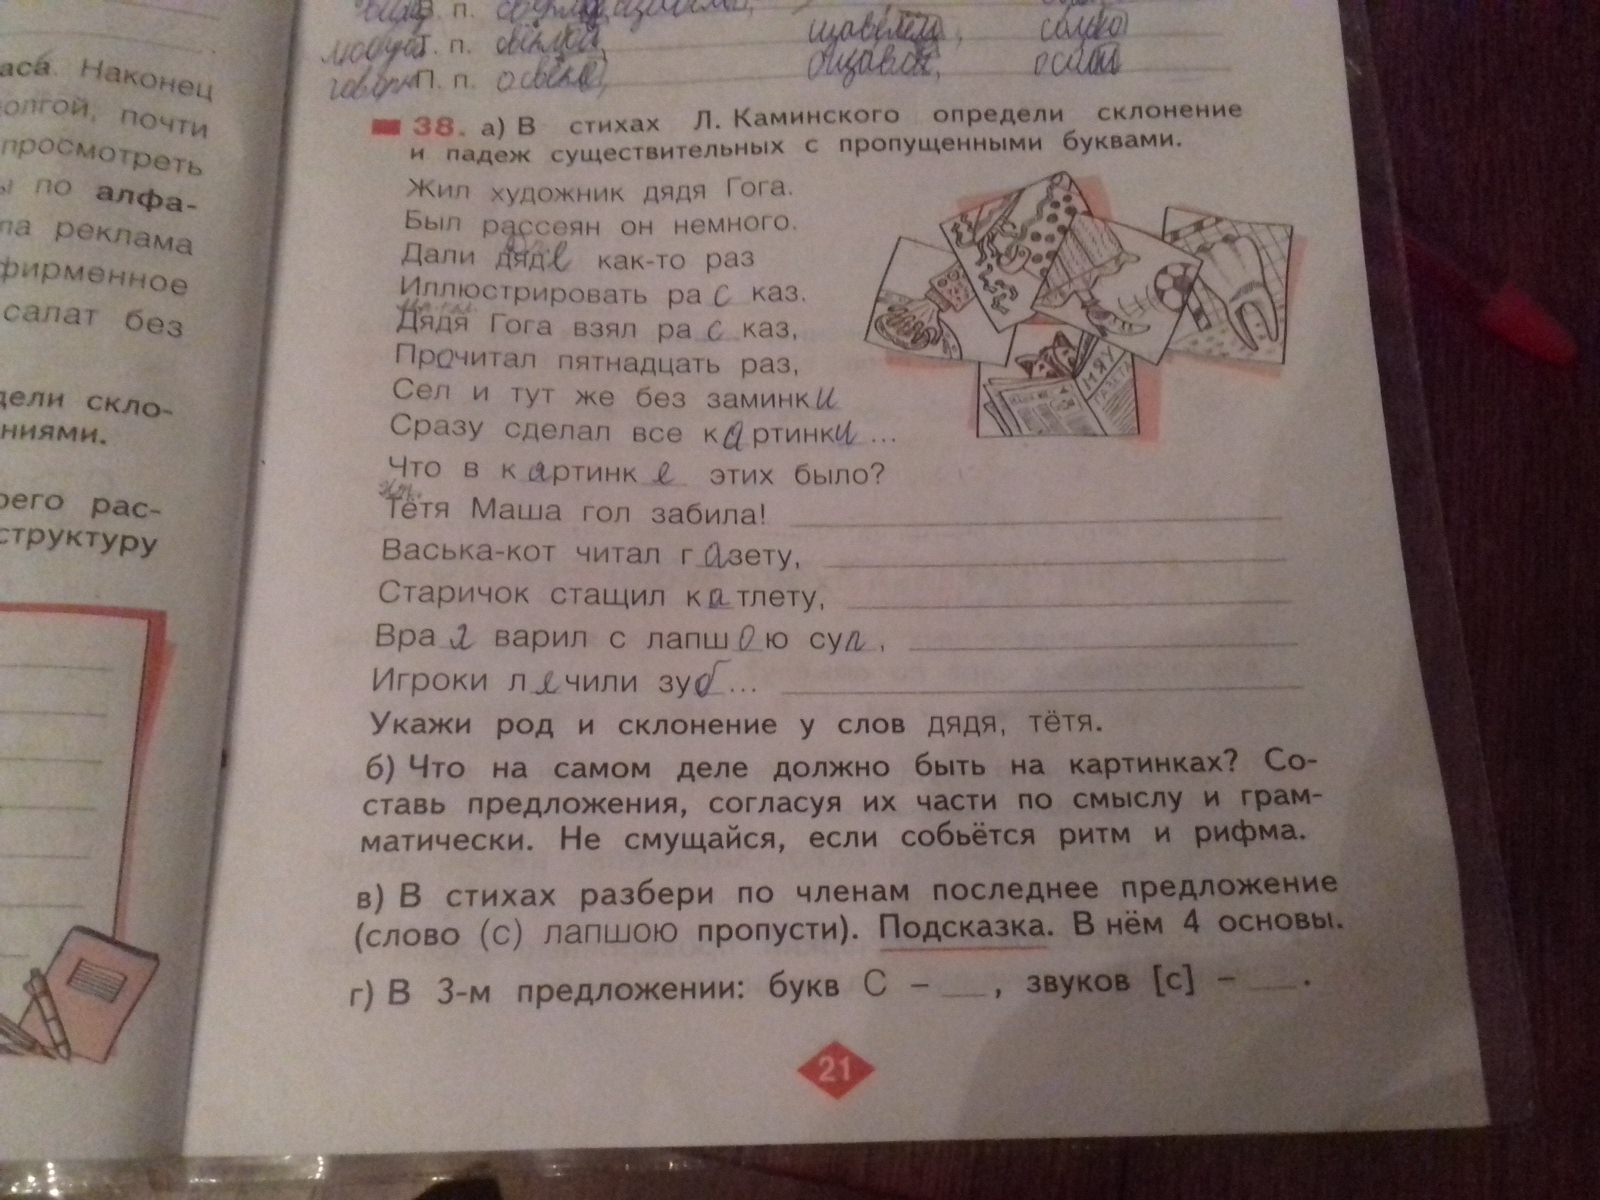 п.
Т. п.
П. п.
аса. Наконец
олгой, почти
просмотреть
ы по алфа-
ла реклама
фирменное
салат без
дели скло-
ниями.
рего рас-
структуру
38. а) В стихах Л. Каминского определи склонение
и падеж существительных с пропущенными буквами.
Жил художник дядя Гога.
Был рассеян он немного.
Дали дяде как-то раз
Иллюстрировать ра с каз.
Дядя Гога взял ра с каз,
Прочитал пятнадцать раз,
Сел и тут же без заминки
Сразу сделал все картинки ...
Что в картинк е этих было?
Тётя Маша гол забила!
Васька-кот читал газету,
Старичок стащил катлету,
Вра варил с лапшою суп,
Игроки лечили зуб ...
Укажи род и склонение у слов дядя, тётя.
б) Что на самом деле должно быть на картинках? Со-
ставь предложения, согласуя их части по смыслу и грам-
матически. Не смущайся, если собьётся ритм и рифма.
в) В стихах разбери по членам последнее предложение
(слово (с) лапшою пропусти). Подсказка. В нём 4 основы.
г) В 3-м предложении: букв С – __, звуков [с] – __.
МЯУ
ГАЗЕТА
21